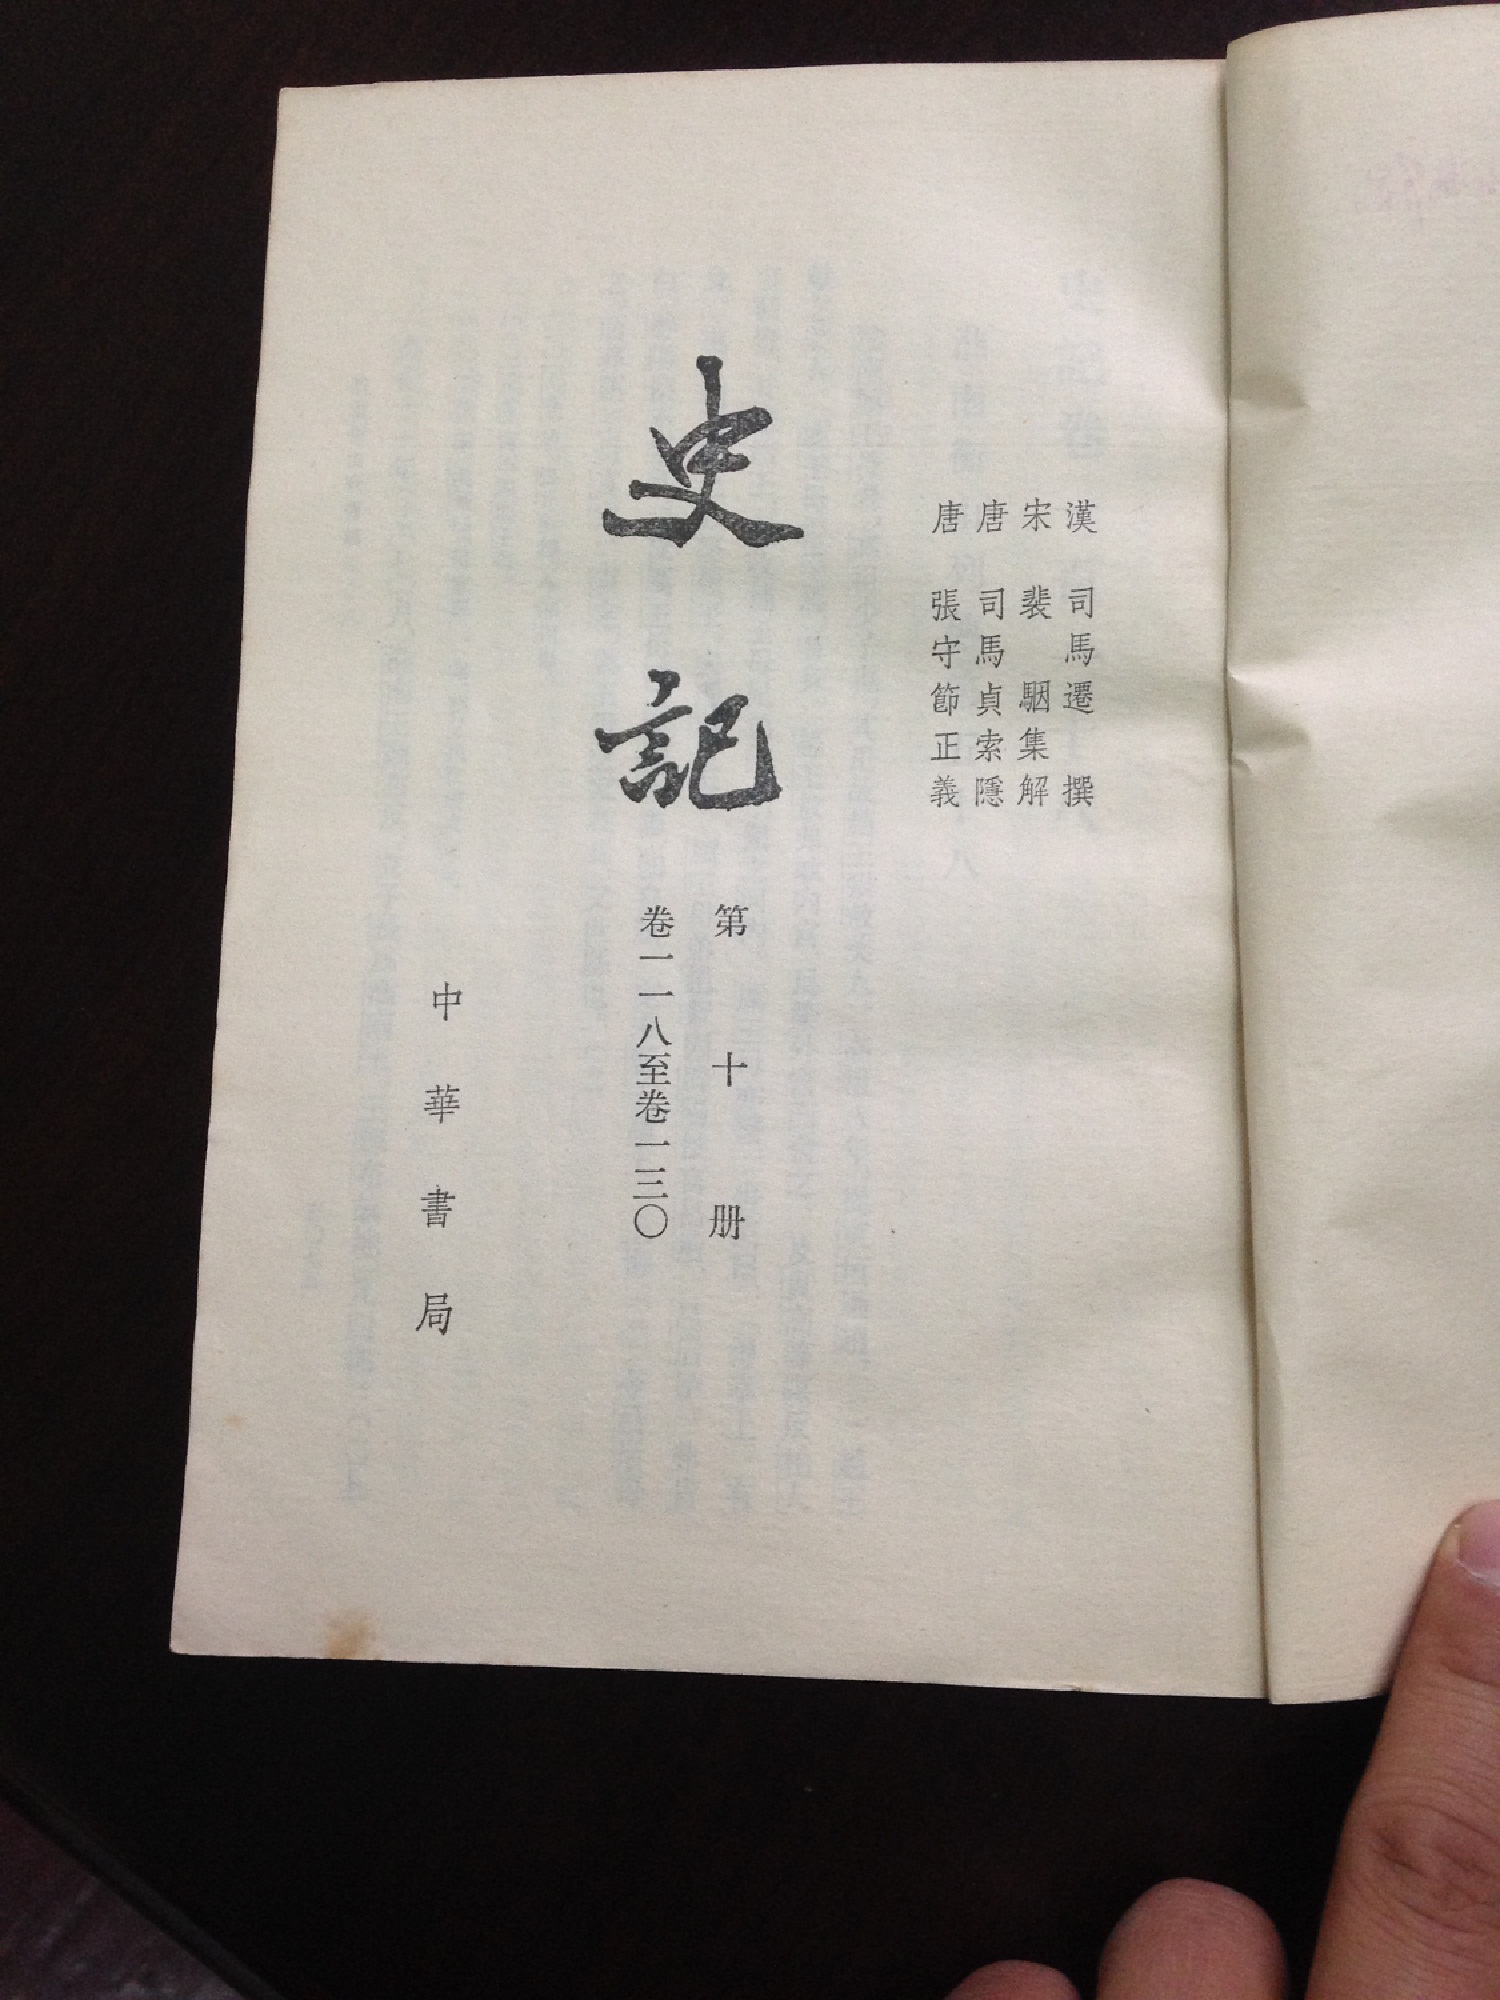 漢 司馬遷 撰
宋 裴 駰集解
唐 司馬貞索隱
唐 張守節正義
史記
第十册
卷一一八至卷一三〇
中華書局